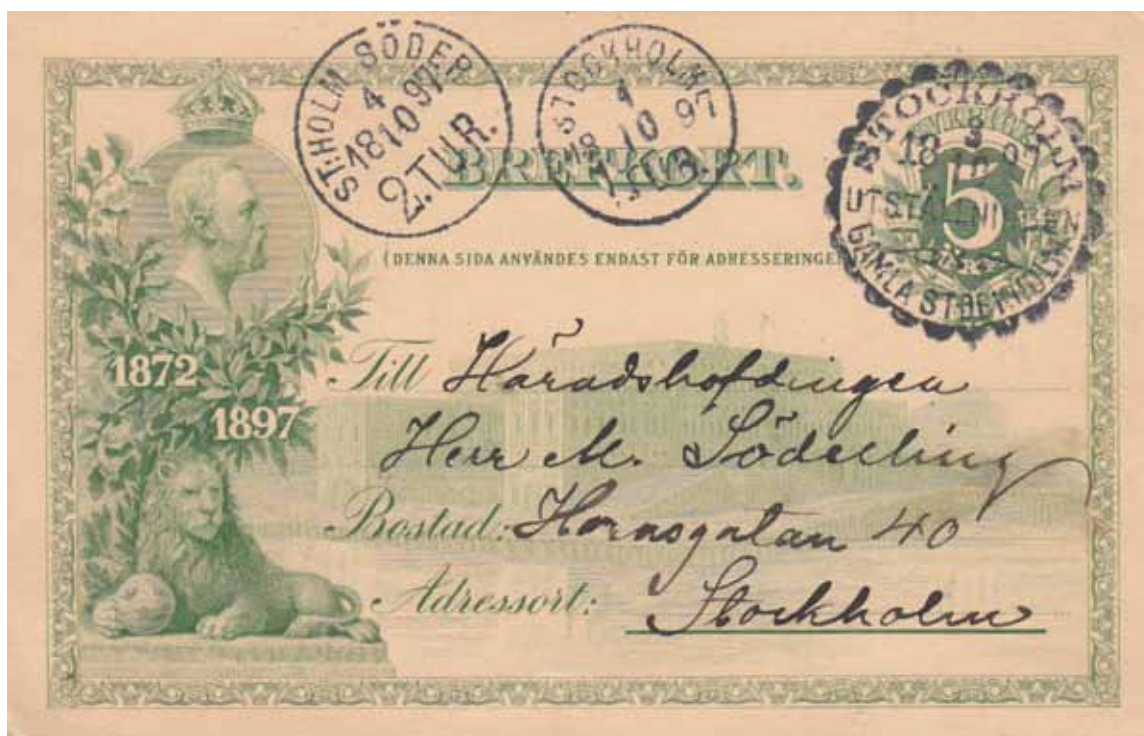 ST:HOLM SÖDER
4
18 10 97
2.TUR.
STOCKHOLM
4
18 10 97
TUR.
STOCKHOLM
3
18 10
UTSTÄLLNINGEN
GAMLA STOCKHOLM
5
BREFKORT.
(DENNA SIDA ANVÄNDES ENDAST FÖR ADRESSERINGEN
1872
1897
Till Häradshöfdingen
Herr M. Söderling
Bostad: Hornsgatan 40
Adressort: Stockholm